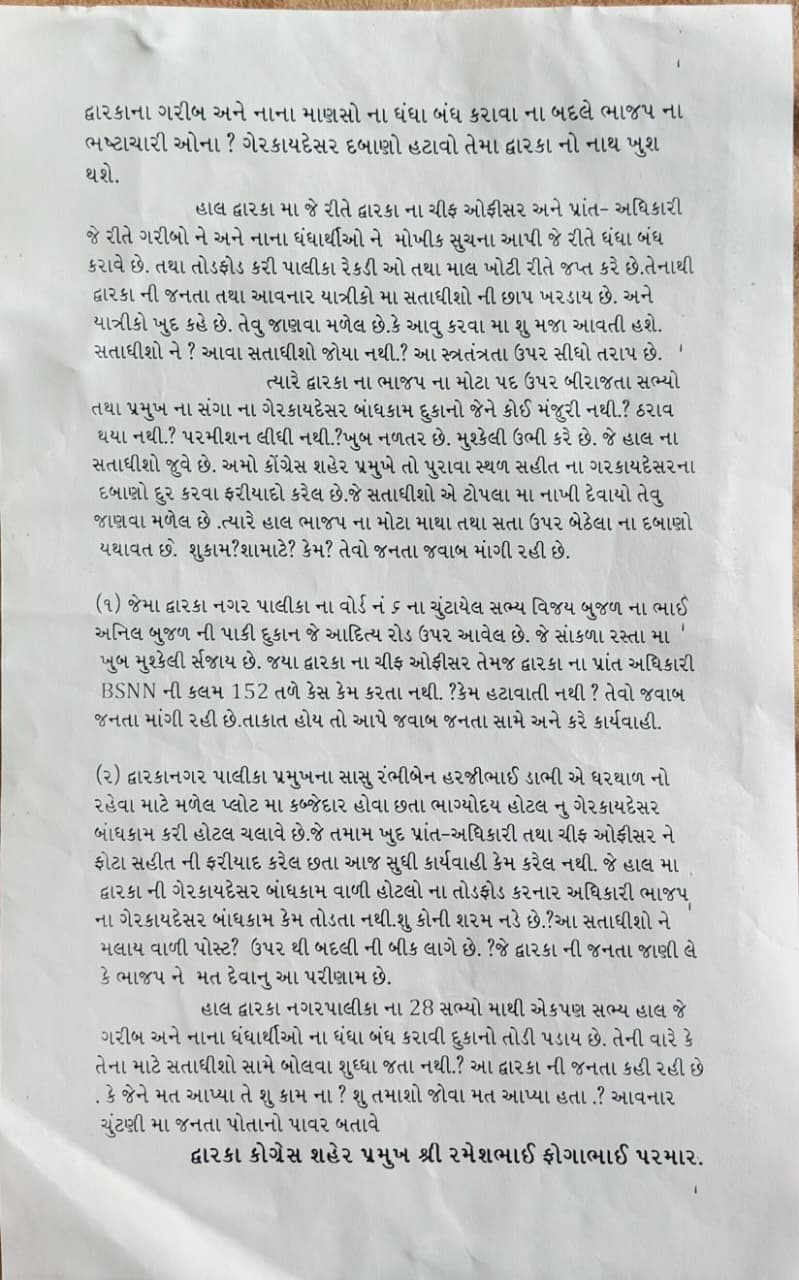 દ્વારકાના ગરીબ અને નાના માણસો ના ધંધા બંધ કરાવા ના બદલે ભાજપ ના
ભષ્ટાચારી ઓના ? ગેરકાયદેસર દબાણો હટાવો તેમા દ્વારકા નો નાથ ખુશ
થશે.
હાલ દ્વારકા મા જે રીતે દ્વારકા ના ચીફ ઓફીસર અને પ્રાંત- અધિકારી
જે રીતે ગરીબો ને અને નાના ધંધાર્થીઓ ને મોખીક સુચના આપી જે રીતે ધંધા બંધ
કરાવે છે. તથા તોડફોડ કરી પાલીકા રેકડી ઓ તથા માલ ખોટી રીતે જપ્ત કરે છે.તેનાથી
દ્વારકા ની જનતા તથા આવનાર યાત્રીકો મા સતાધીશો ની છાપ ખરડાય છે. અને
યાત્રીકો ખુદ કહે છે. તેવુ જાણવા મળેલ છે.કે આવુ કરવા મા શુ મજા આવતી હશે.
સતાધીશો ને ? આવા સતાધીશો જોયા નથી.? આ સ્ત્રતંત્રતા ઉપર સીધો તરાપ છે.
ત્યારે દ્વારકા ના ભાજપ ના મોટા પદ ઉપર બીરાજતા સભ્યો
તથા પ્રમુખ ના સંગા ના ગેરકાયદેસર બાંધકામ દુકાનો જેને કોઈ મંજુરી નથી.? ઠરાવ
થયા નથી.? પરમીશન લીધી નથી.?ખુબ નળતર છે. મુશ્કેલી ઉભી કરે છે. જે હાલ ના
સતાધીશો જુવે છે. અમો કોંગ્રેસ શહેર પ્રમુખે તો પુરાવા સ્થળ સહીત ના ગરકાયદેસરના
દબાણો દુર કરવા ફરીયાદો કરેલ છે.જે સતાધીશો એ ટોપલા મા નાખી દેવાયો તેવુ
જાણવા મળેલ છે .ત્યારે હાલ ભાજપ ના મોટા માથા તથા સતા ઉપર બેઠેલા ના દબાણો
યથાવત છે. શુકામ?શામાટે? કેમ? તેવો જનતા જવાબ માંગી રહી છે.
(૧) જેમા દ્વારકા નગર પાલીકા ના વોર્ડ નં ૬ ના ચુંટાયેલ સભ્ય વિજય બુજળ ના ભાઈ
અનિલ બુજળ ની પાકી દુકાન જે આદિત્ય રોડ ઉપર આવેલ છે. જે સાંકળા રસ્તા મા
ખુબ મુશ્કેલી ર્સજાય છે. જયા દ્વારકા ના ચીફ ઓફીસર તેમજ દ્વારકા ના પ્રાંત અધિકારી
BSNN ની કલમ 152 તળે કેસ કેમ કરતા નથી. ?કેમ હટાવાતી નથી ? તેવો જવાબ
જનતા માંગી રહી છે.તાકાત હોય તો આપે જવાબ જનતા સામે અને કરે કાર્યવાહી.
(૨) દ્વારકાનગર પાલીકા પ્રમુખના સાસુ રંભીબેન હરજીભાઈ ડાભી એ ઘરથાળ નો
રહેવા માટે મળેલ પ્લોટ મા કબ્જેદાર હોવા છતા ભાગ્યોદય હોટલ નુ ગેરકાયદેસર
બાંધકામ કરી હોટલ ચલાવે છે.જે તમામ ખુદ પ્રાંત-અધિકારી તથા ચીફ ઓફીસર ને
ફોટા સહીત ની ફરીયાદ કરેલ છતા આજ સુધી કાર્યવાહી કેમ કરેલ નથી. જે હાલ મા
દ્વારકા ની ગેરકાયદેસર બાંધકામ વાળી હોટલો ના તોડફોડ કરનાર અધિકારી ભાજપ
ના ગેરકાયદેસર બાંધકામ કેમ તોડતા નથી.શુ કોની શરમ નડે છે.?આ સતાધીશો ને
મલાય વાળી પોસ્ટ? ઉપર થી બદલી ની બીક લાગે છે. ?જે દ્વારકા ની જનતા જાણી લે
કે ભાજપ ને મત દેવાનુ આ પરીણામ છે.
હાલ દ્વારકા નગરપાલીકા ના 28 સભ્યો માથી એકપણ સભ્ય હાલ જે
ગરીબ અને નાના ધંધાર્થીઓ ના ધંધા બંધ કરાવી દુકાનો તોડી પડાય છે. તેની વારે કે
તેના માટે સતાધીશો સામે બોલવા શુધ્ધા જતા નથી.? આ દ્વારકા ની જનતા કહી રહી છે
. કે જેને મત આપ્યા તે શુ કામ ના ? શુ તમાશો જોવા મત આપ્યા હતા .? આવનાર
ચુંટણી મા જનતા પોતાનો પાવર બતાવે
દ્વારકા કોગ્રેસ શહેર પ્રમુખ શ્રી રમેશભાઈ ફોગાભાઈ પરમાર.